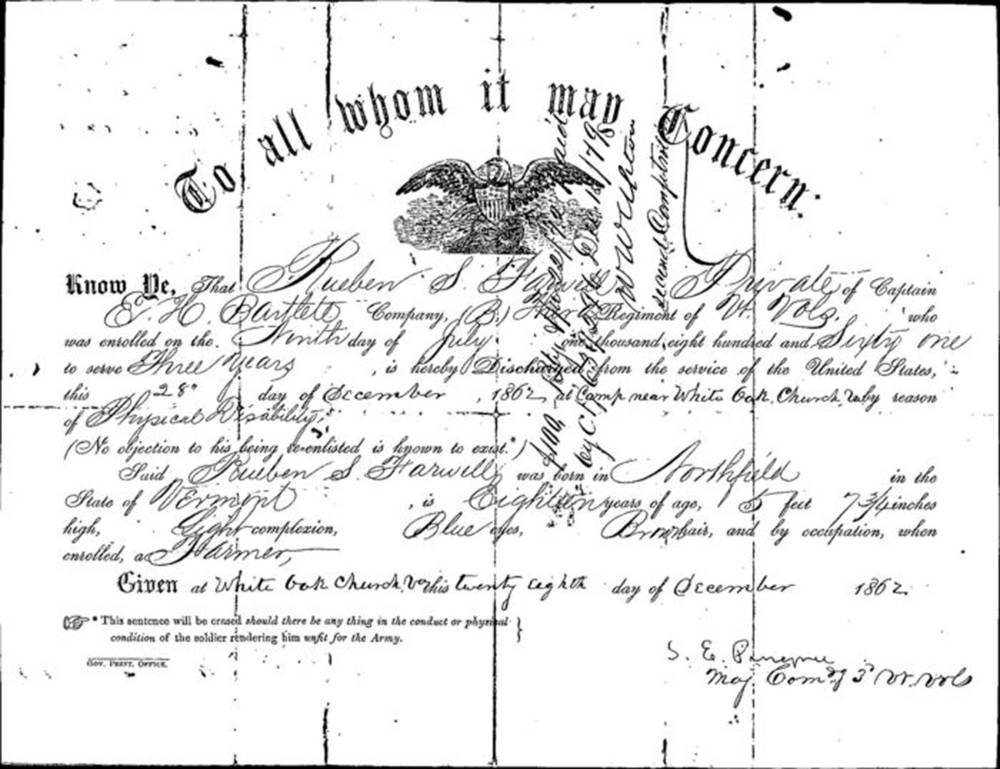 To all whom it may Concern:
Know Ye, That Rueben S. Farwell Private of Captain
E. H. Bartlett Company, (B.) Third Regiment of Vt. Vols. who
was enrolled on the Ninth day of July one thousand eight hundred and Sixty one
to serve Three years, is hereby Discharged from the service of the United States,
this 28" day of December, 1862, at Camp near White Oak Church, Va by reason
of Physical Disability.
(No objection to his being re-enlisted is known to exist.*)
Said Rueben S. Farwell was born in Northfield in the
State of Vermont, is Eighteen years of age, 5 feet 7 3/4 inches
high, Light complexion, Blue eyes, Brown hair, and by occupation, when
enrolled, a Farmer,
Given at White Oak Church, Va this twenty eighth day of December 1862.
* This sentence will be erased should there be any thing in the conduct or physical
condition of the soldier rendering him unfit for the Army.
GOV. PRINT. OFFICE.
S. E.
Maj Comd'g 3" Vt. Vols
second Comptroller